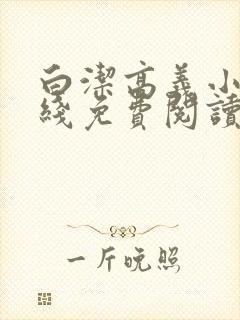 白潔高義小
綫免費閱讀
一斤晚照